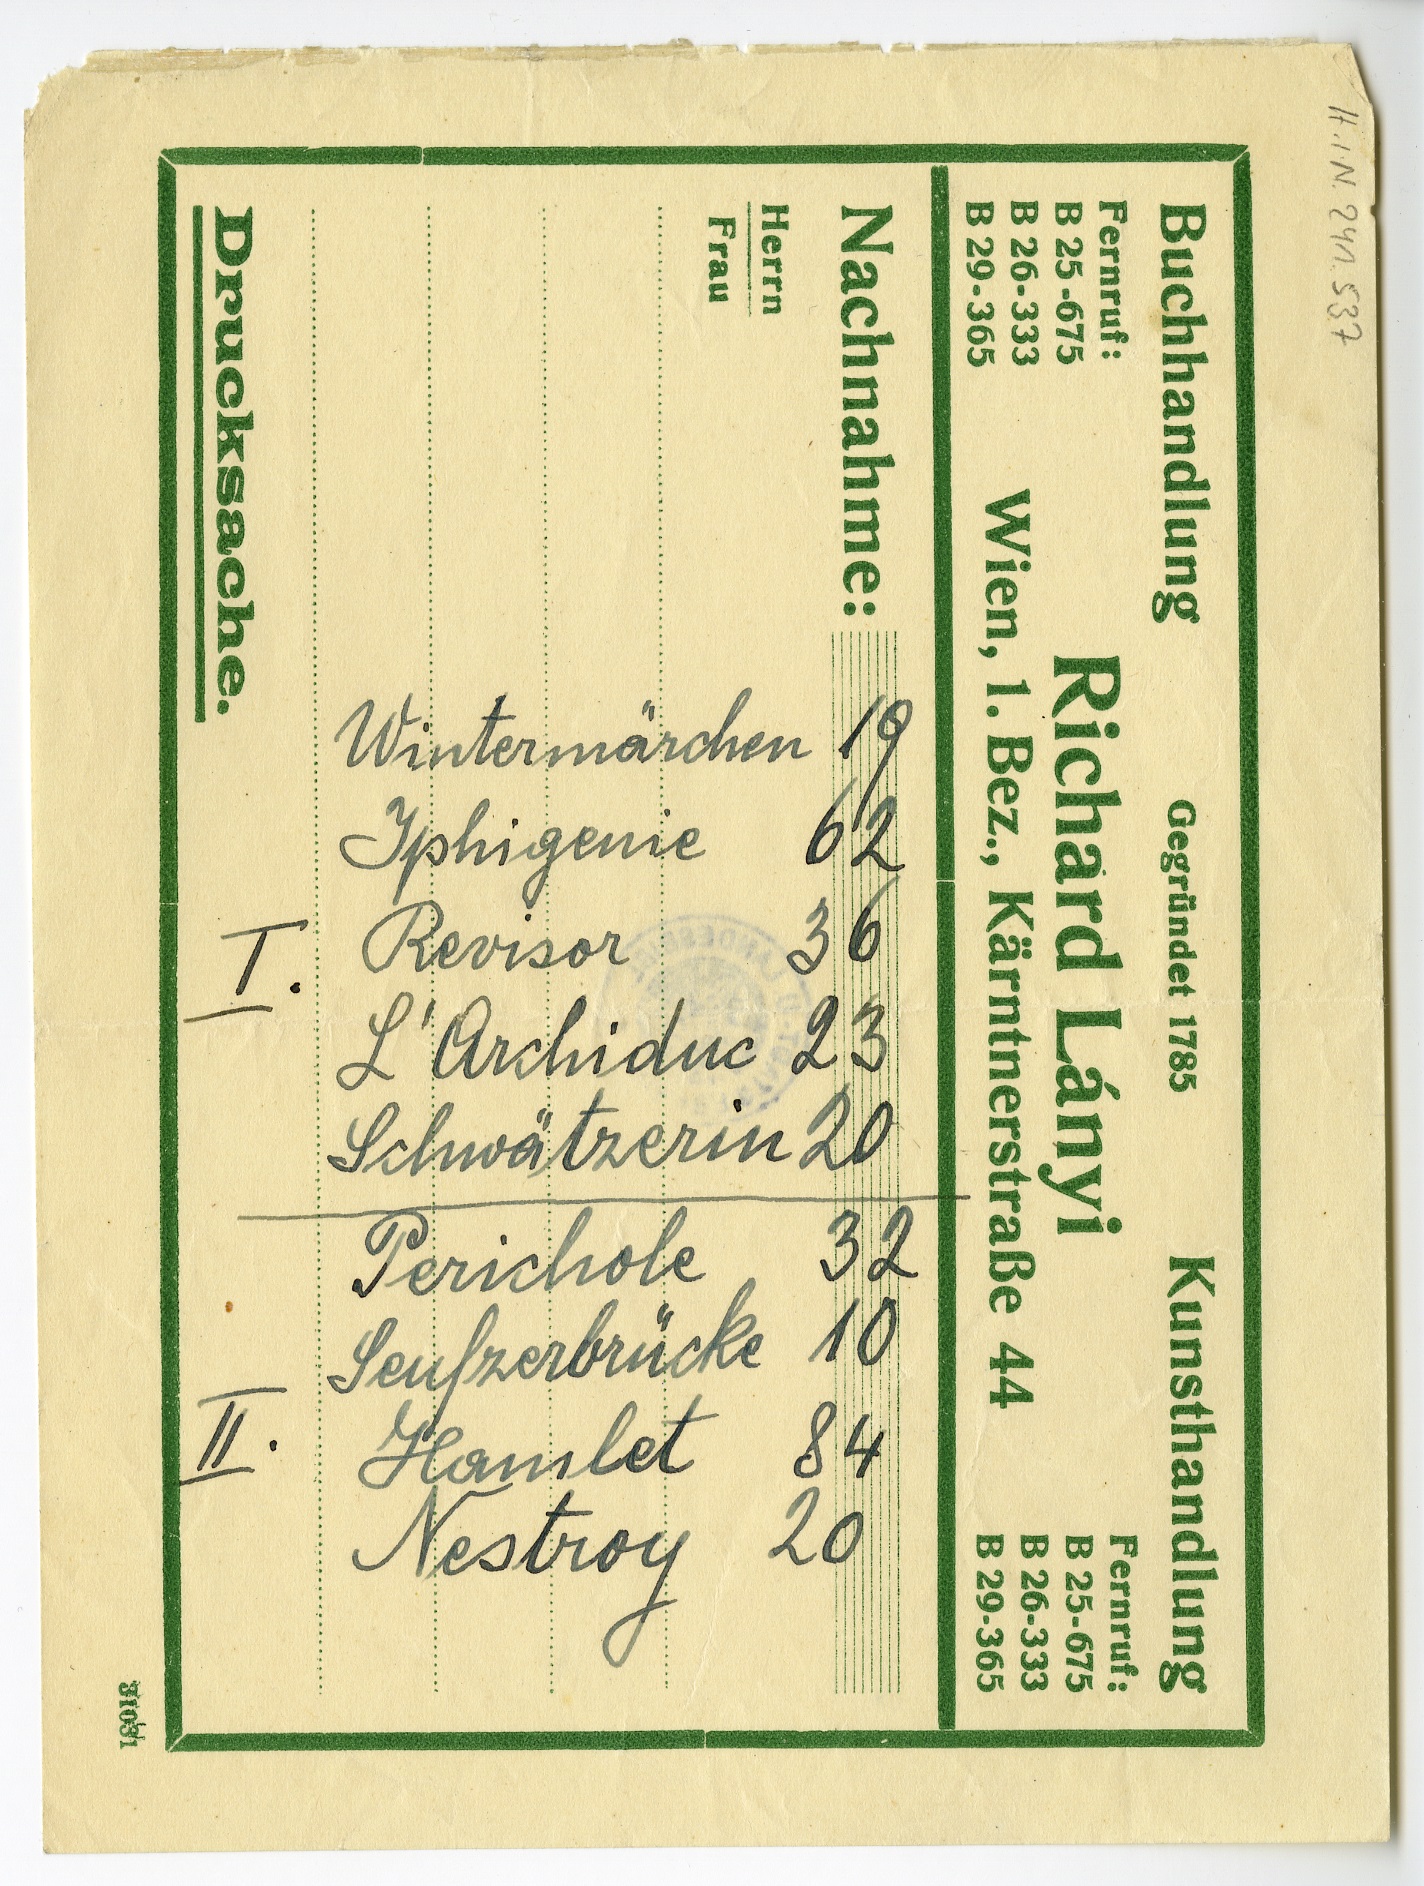 H.I.N. 241.537
Buchhandlung Gegründet 1785 Kunsthandlung
Fernruf:
B 25-675
B 26-333
B 29-365
Richard Lányi
Wien, 1. Bez., Kärntnerstraße 44
Fernruf:
B 25-675
B 26-333
B 29-365
Nachnahme:
Herrn
Frau
Drucksache.
3103/1
Wintermärchen 19
Iphigenie 62
I. Revisor 36
L'Archiduc 23
Schwätzerin 20
Perichole 32
Seufzerbrücke 10
II. Hamlet 84
Nestroy 20